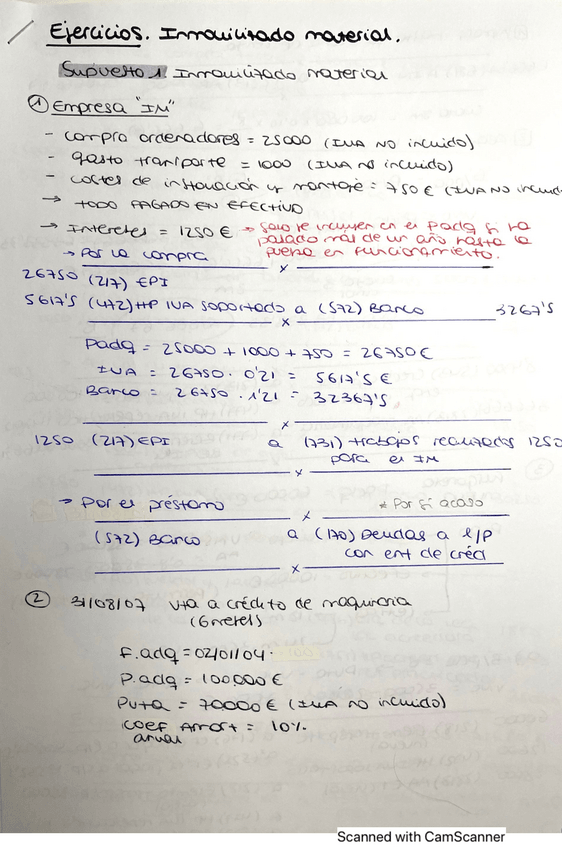 Ejercicios. Inmovilizado material.
Supuesto 1. Inmovilizado material
① Empresa "IM"
- compra ordenadores = 25000 (IVA NO incluido)
- gasto transporte = 1000 (IVA no incluido)
- costes de instalación y montaje = 750 € (IVA NO incluid
→ TODO PAGADO EN EFECTIVO
→ Intereses = 1250 € → solo se incluyen en el Padq si ha
pasado más de un año hasta la
puesta en funcionamiento.
→ Por la compra
x
26750 (217) EPI
5617'5 (472) HP IVA soportado a (572) Banco 3267'5
x
Padq = 25000 + 1000 + 750 = 26750 €
IVA = 26750 · 0'21 = 5617'5 €
Banco = 26750 · 1'21 = 32367'5
x
1250 (217) EPI a (731) trabajos realizados 1250
para el IM
x
→ Por el préstamo * Por si acaso
x
(572) Banco a (170) Deudas a l/p
con ent de créd
x
② 31/08/07 vta a crédito de maquinaria
(6 meses)
F.adq = 02/01/04.
P.adq = 100000 €
Pvta = 70000 € (IVA no incluido)
coef Amort = 10%
anual
Scanned with CamScanner